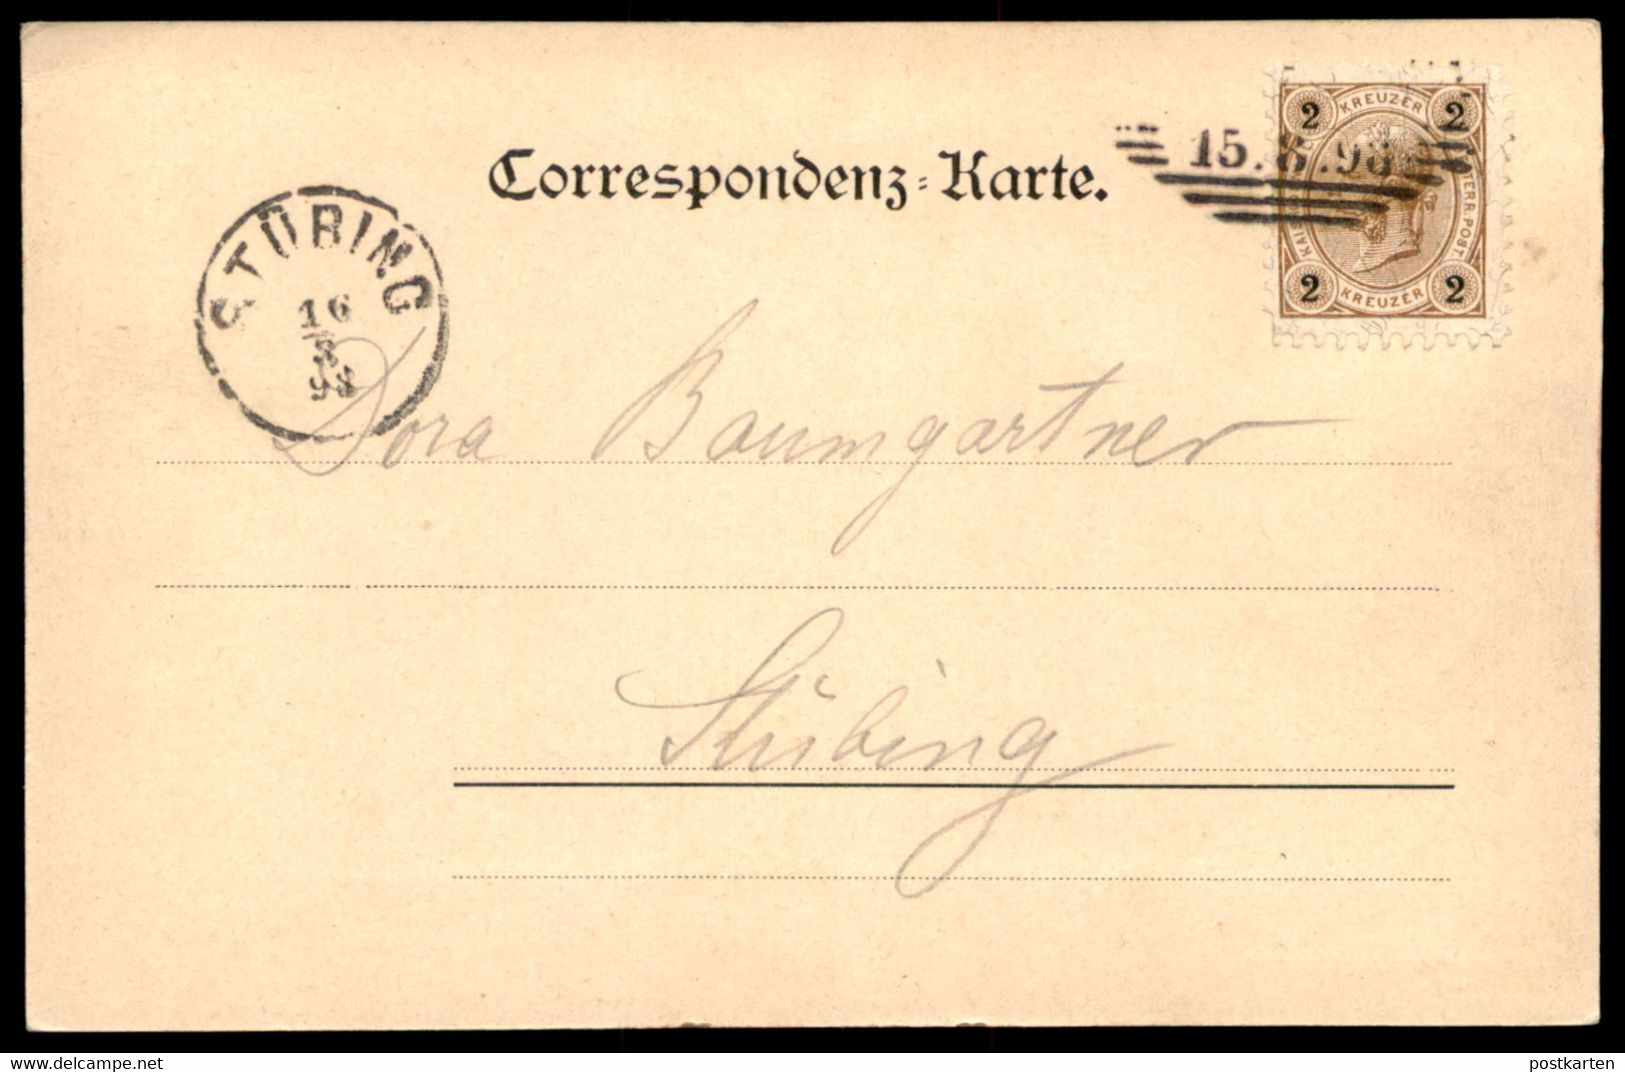 Correspondenz-Karte.
2 KREUZER 2
15. 8 .98
KAIS
TERR. POST.
2 KREUZER 2
STÜBING
16
8
98
Dora Baumgartner
Stübing
delcampe.net
postkarten